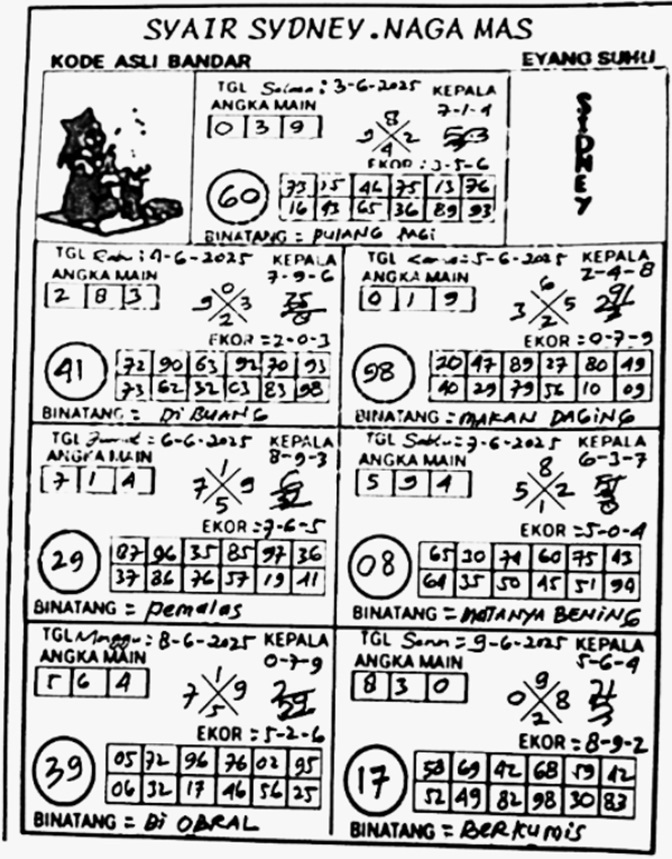 SYAIR SYDNEY.NAGA MAS
KODE ASLI BANDAR
EYANG SUHU
SIDNEY
TGL Selasa : 3-6-2025 KEPALA
ANGKA MAIN 7-1-4
0 3 9
8
9 2
4
EKOR : 3-5-6
60
73 15 46 75 13 76
16 43 65 36 89 93
BINATANG = PULANG PAGI
TGL Rabu : 4-6-2025 KEPALA
ANGKA MAIN 7-9-6
2 8 3
0
9 3
2
EKOR = 2-0-3
41
72 90 63 92 70 93
73 62 32 03 83 98
BINATANG = Di BUANG
TGL Kamis = 5-6-2025 KEPALA
ANGKA MAIN 2-4-8
0 1 9
6
3 5
2
EKOR = 0-7-9
98
20 47 89 27 80 49
40 29 79 56 10 09
BINATANG = MAKAN DAGING
TGL Jumat = 6-6-2025 KEPALA
ANGKA MAIN 8-9-3
7 1 4
1
7 9
5
EKOR = 7-6-5
29
87 96 35 85 97 36
37 86 76 57 19 41
BINATANG = Pemalas
TGL Sabtu = 7-6-2025 KEPALA
ANGKA MAIN 6-3-7
5 9 4
8
5 2
1
EKOR = 5-0-4
08
65 30 74 60 75 43
64 35 50 45 51 94
BINATANG = MATANYA BENING
TGL Minggu : 8-6-2025 KEPALA
ANGKA MAIN 0-7-9
5 6 4
1
7 9
5
EKOR : 5-2-6
39
05 72 96 76 02 95
06 32 17 46 56 25
BINATANG = Di OBRAL
TGL Senin = 9-6-2025 KEPALA
ANGKA MAIN 5-6-4
8 3 0
9
0 8
2
EKOR : 8-9-2
17
58 69 42 68 59 42
52 49 82 98 30 83
BINATANG = BERKUMIS